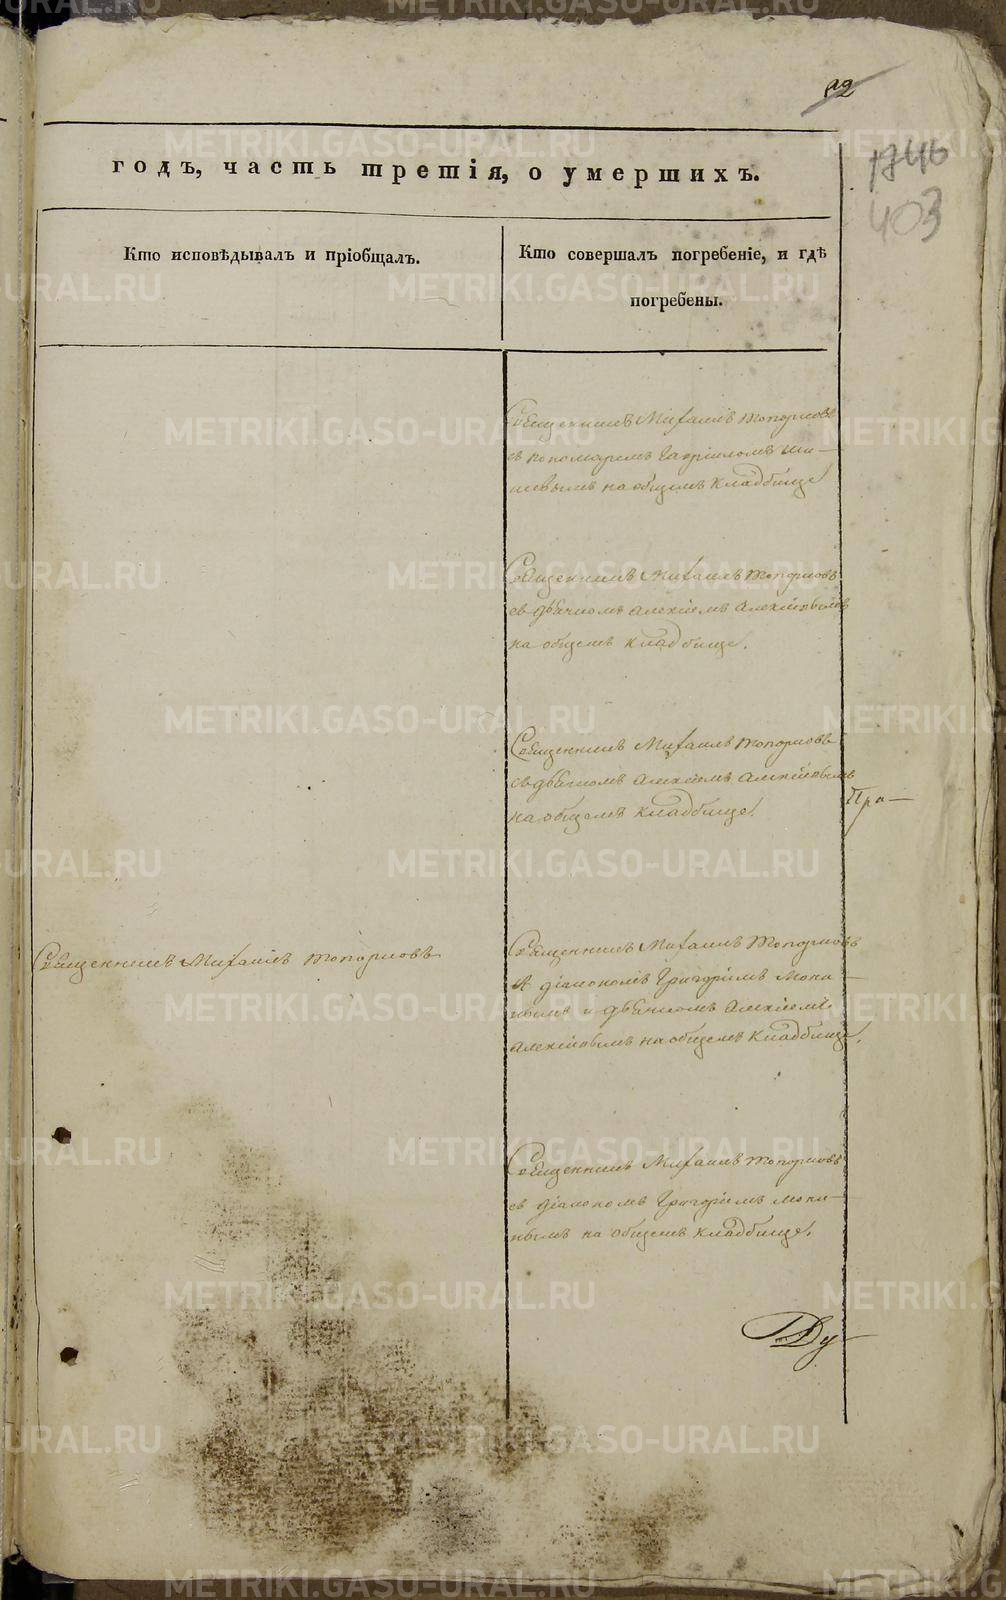 1746
403
годъ, часть третія, о умершихъ.
Кто исповѣдывалъ и пріобщалъ.
Кто совершалъ погребеніе, и гдѣ
погребены.
Священникъ Михаилъ Топорковъ
съ пономаремъ Гавріиломъ Ши-
на общемъ кладбище
Священникъ Михаилъ Топорковъ
съ дьячкомъ Алексіемъ Алексіевымъ
на общемъ кладбище.
Священникъ Михаилъ Топорковъ
съ дьячкомъ Алексіемъ Алексіевымъ
на общемъ кладбище.
Пра-
Священникъ Михаилъ Топорковъ
Священникъ Михаилъ Топорковъ
діакономъ Григоріемъ
и дьячкомъ Алексіемъ
Алексіевымъ на общемъ кладбище.
Священникъ Михаилъ Топорковъ
съ діакономъ Григоріемъ
на общемъ кладбище.
Ду-
METRIKI.GASO-URAL.RU